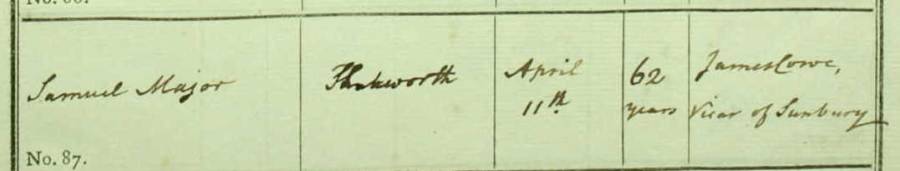 Samuel Major
April
11th
62
years
James Cowe,
Vicar of Sunbury
No. 87.